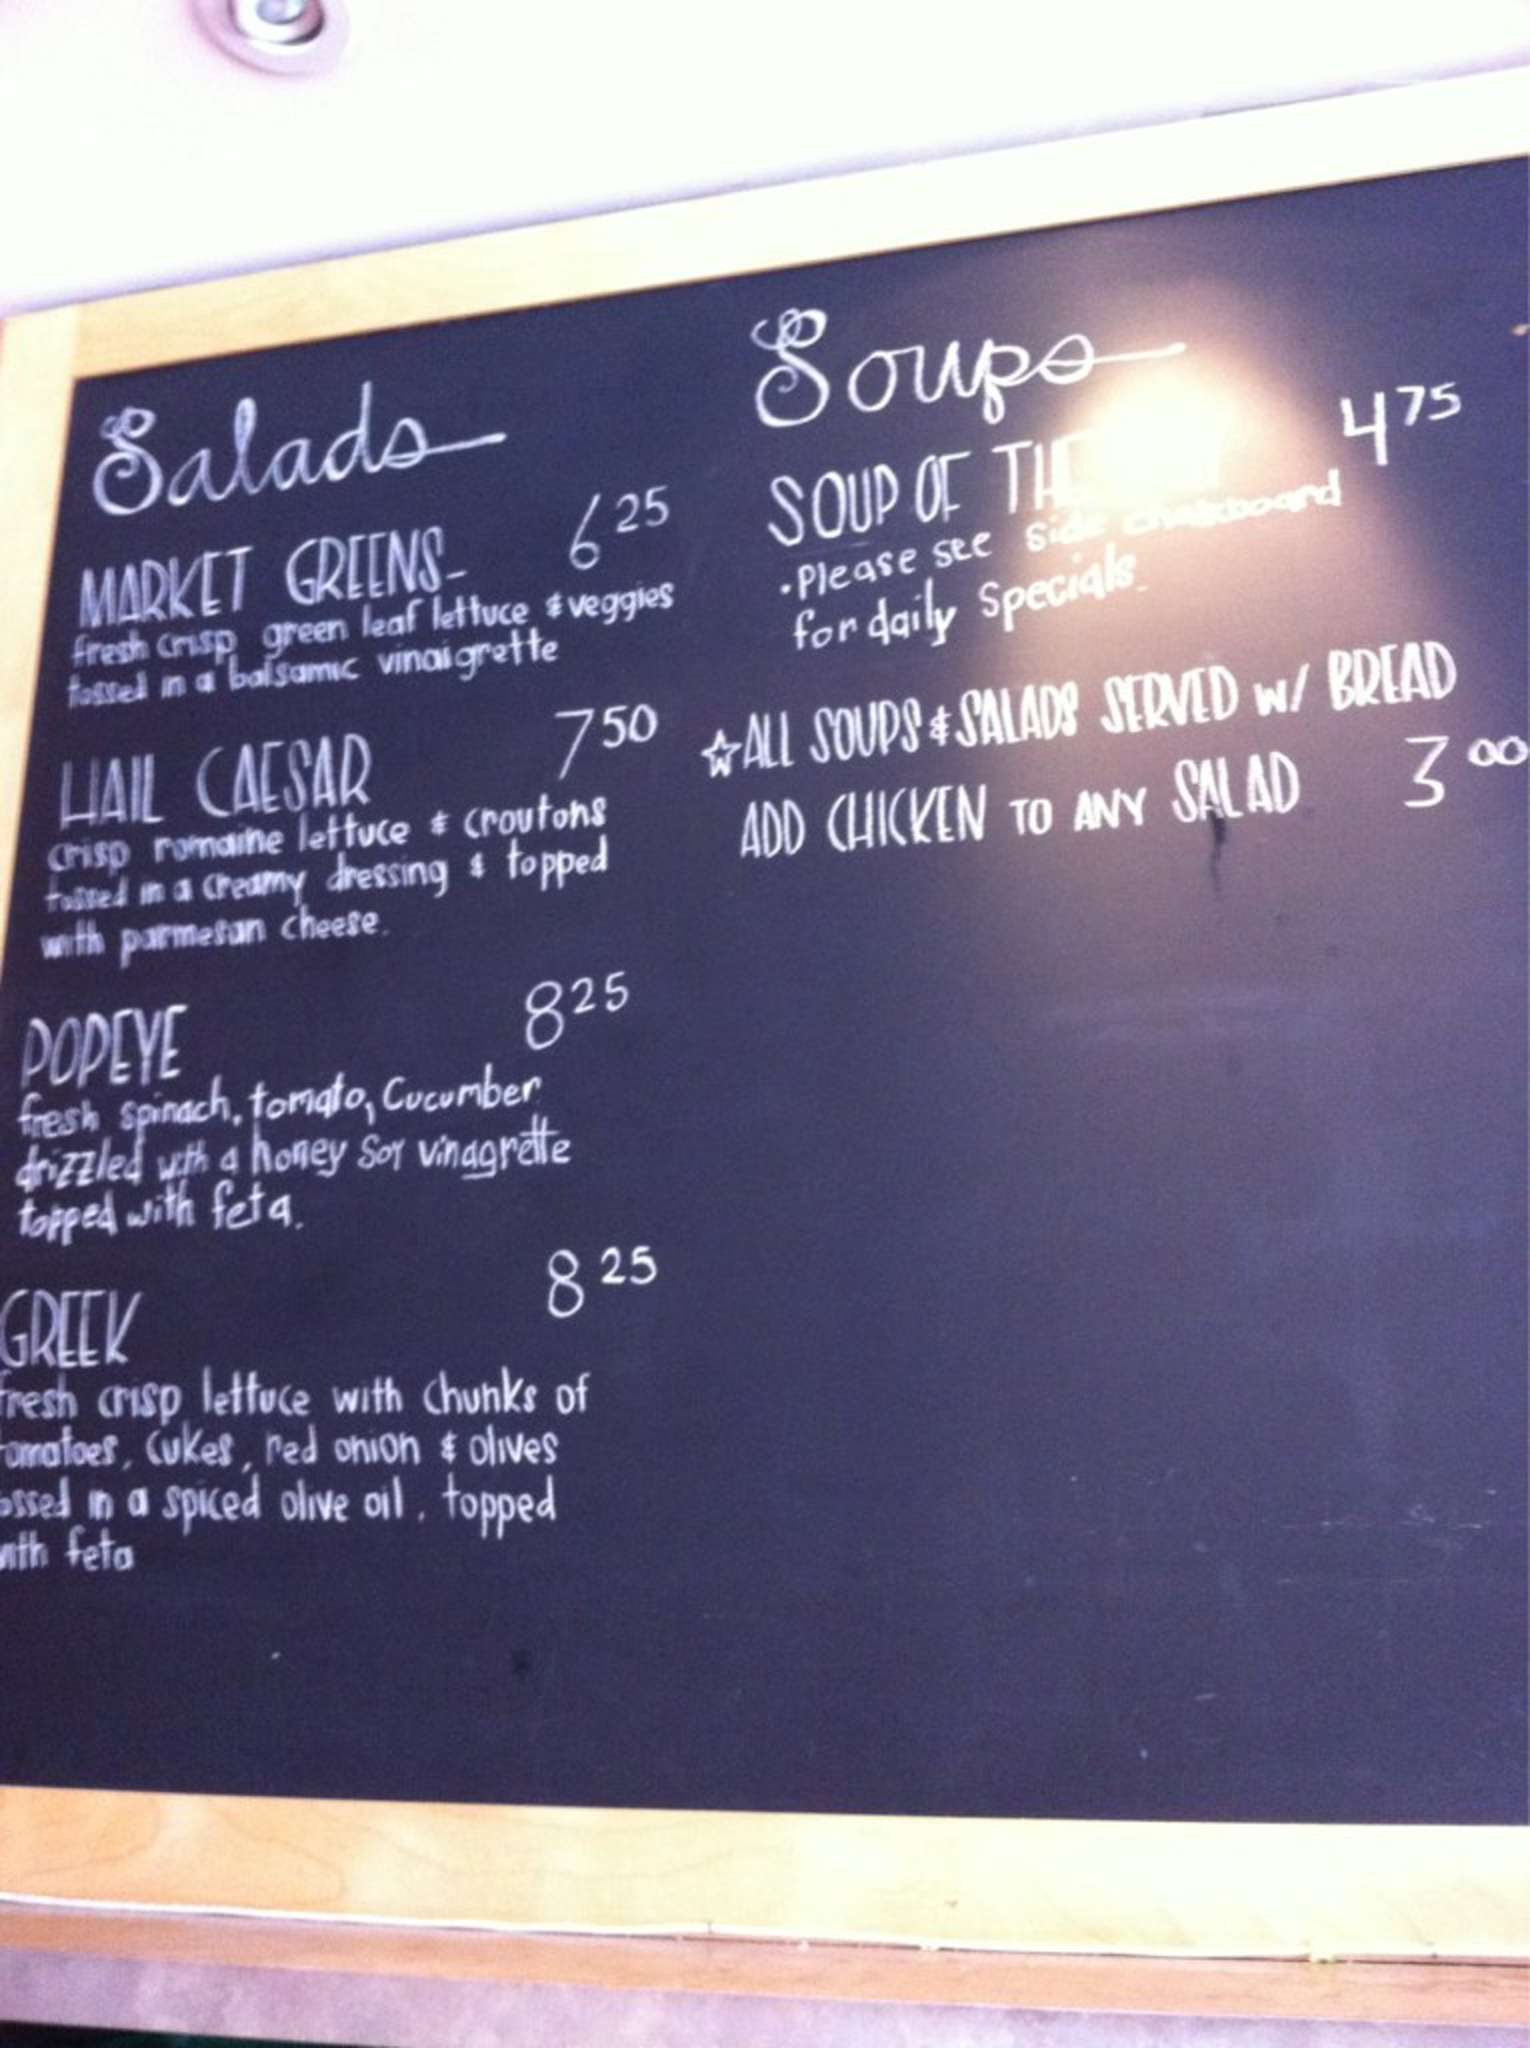 Salads
MARKET GREENS- 6 25
fresh crisp green leaf lettuce & veggies
tossed in a balsamic vinaigrette
HAIL CAESAR 7 50
crisp romaine lettuce & croutons
tossed in a creamy dressing & topped
with parmesan cheese.
POPEYE 8 25
fresh spinach, tomato, Cucumber
drizzled with a honey soy vinagrette
topped with feta.
GREEK 8 25
fresh crisp lettuce with chunks of
tomatoes, cukes, red onion & olives
tossed in a spiced olive oil. topped
with feta
Soups
SOUP OF THE 4 75
• Please see side chalkboard
for daily specials.
☆ ALL SOUPS & SALADS SERVED w/ BREAD
ADD CHICKEN TO ANY SALAD 3 00